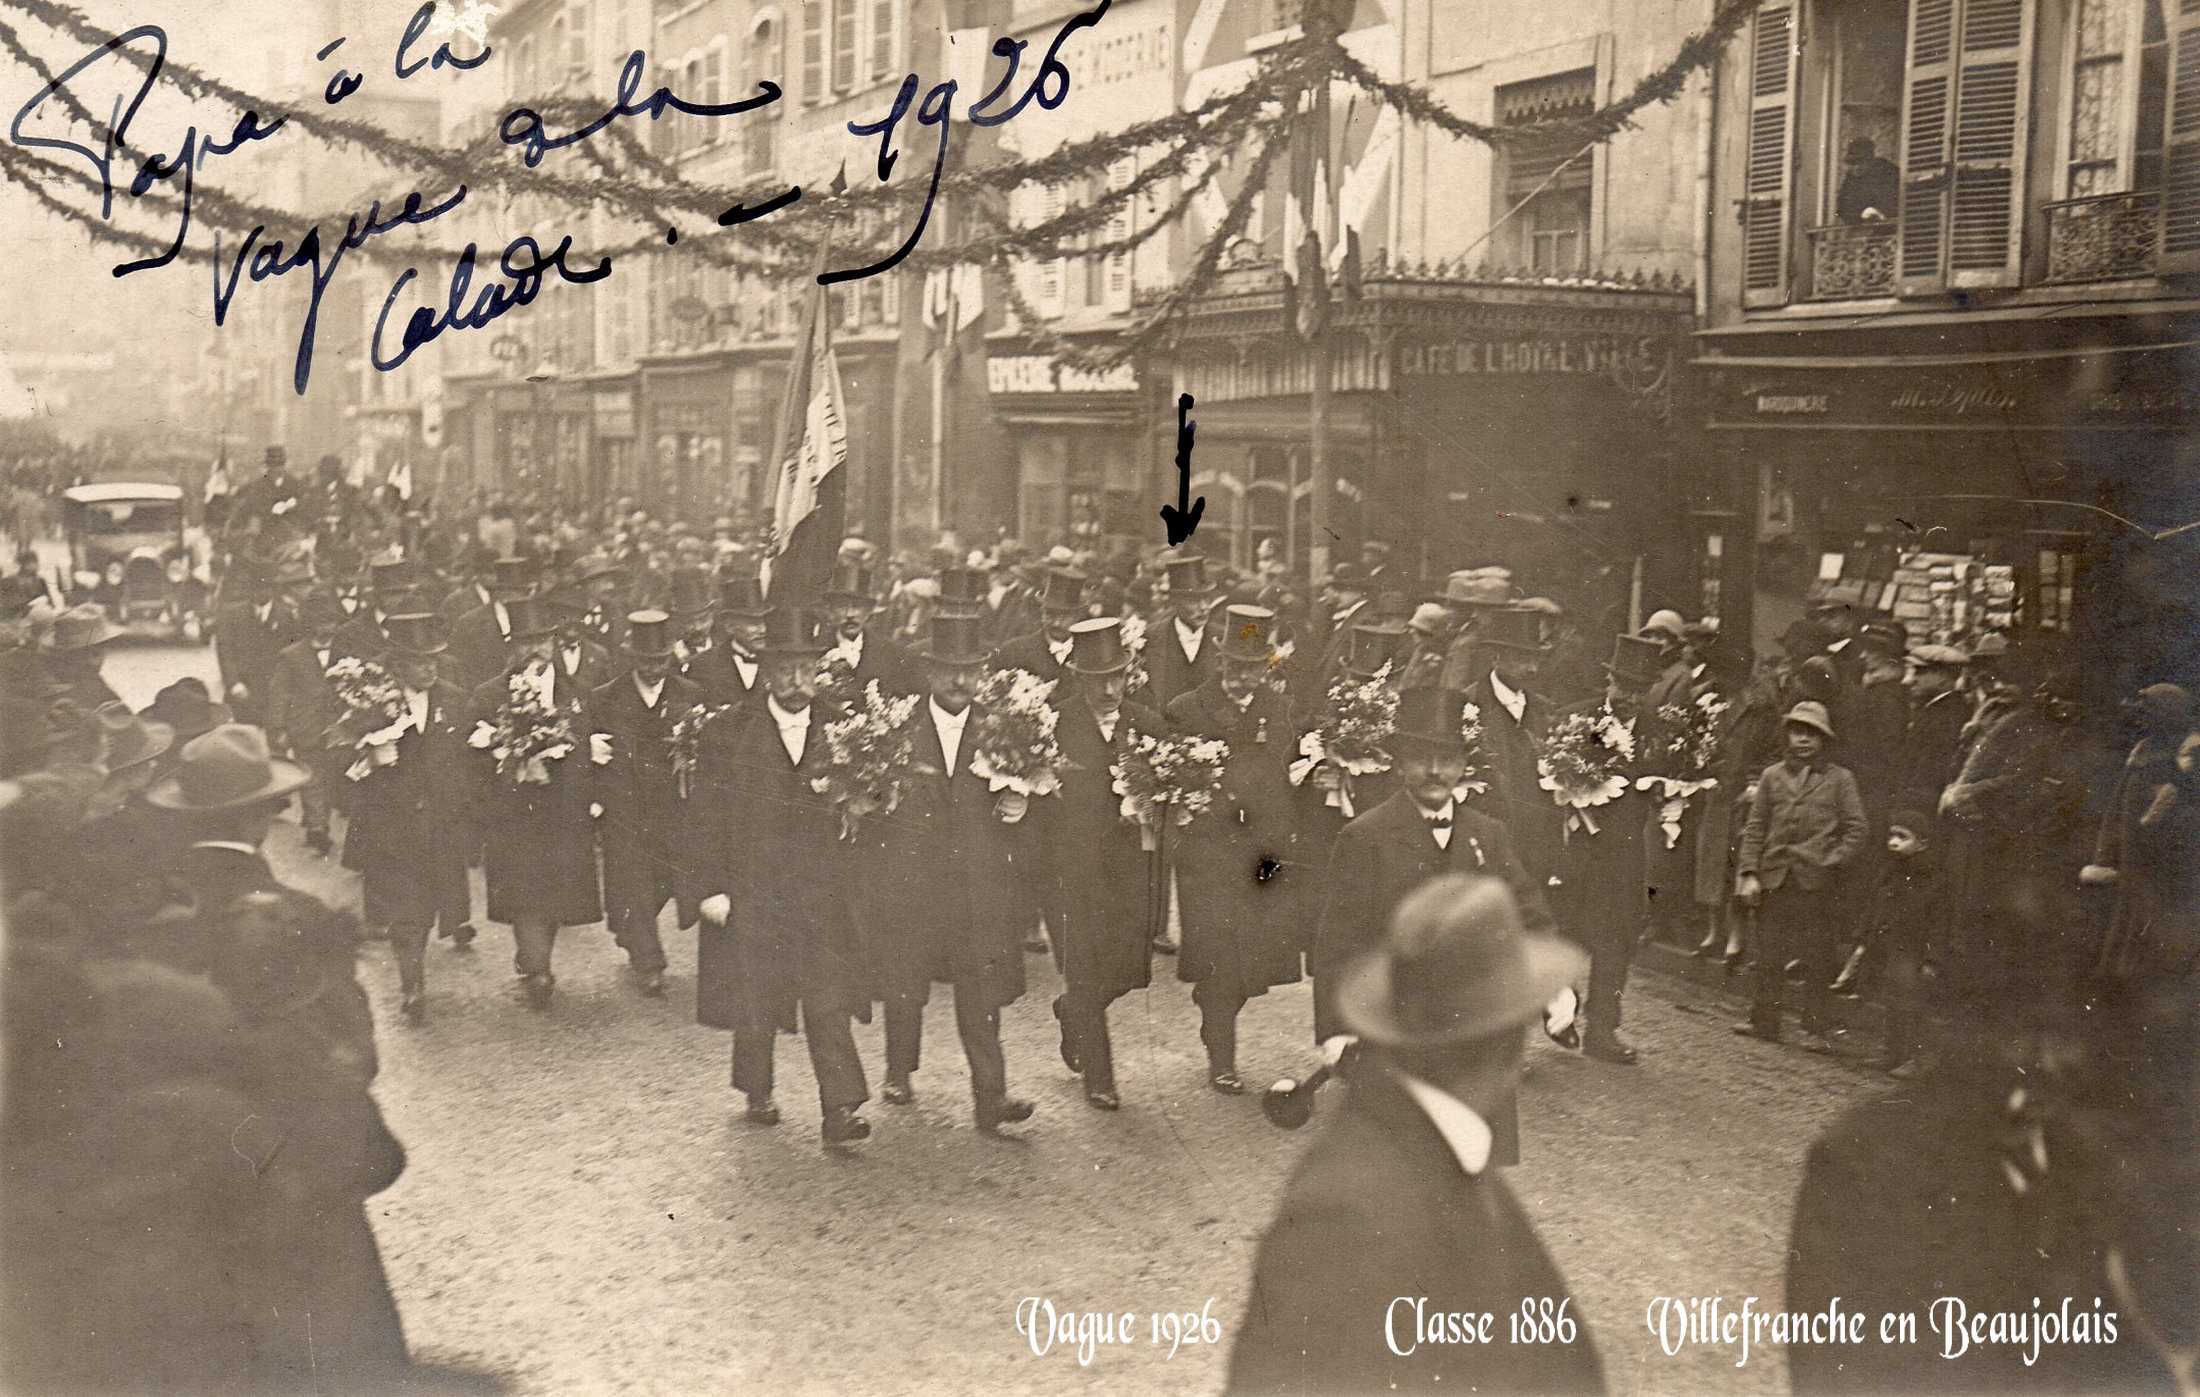 Papa à la
vague à la
Calade. — 1926
EPICERIE MODERNE
CAFÉ DE L'HOTEL VILLE
MAROQUINERIE
Vague 1926 Classe 1886 Villefranche en Beaujolais